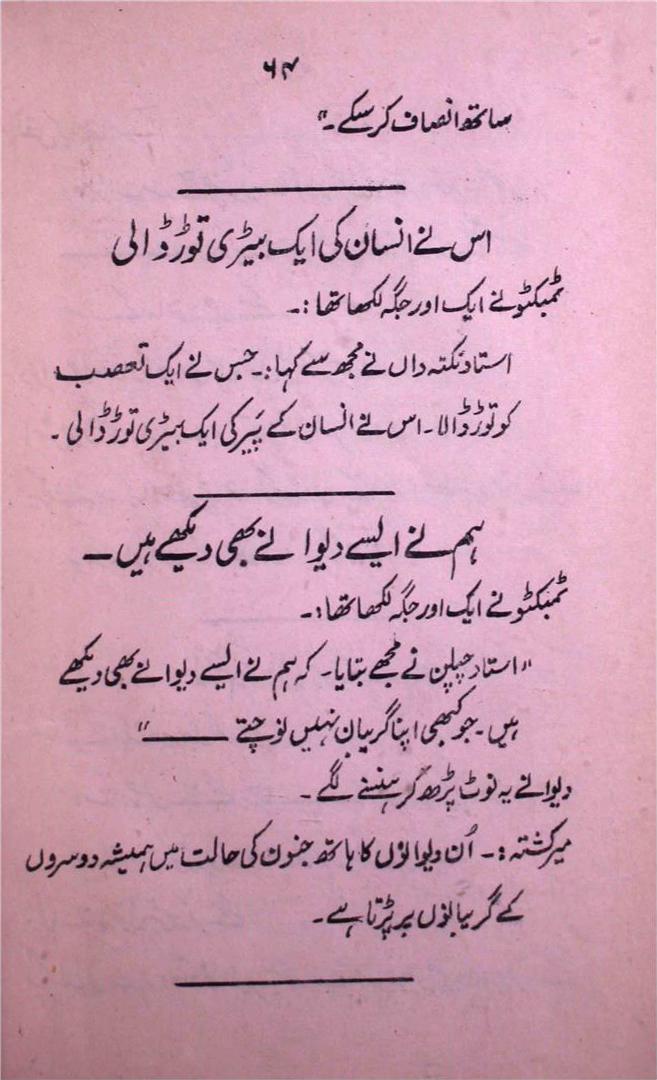 ۶۴
ساتھ انصاف کر سکے۔"
اس نے انسان کی ایک بیڑی توڑ ڈالی
ٹمبکٹو نے ایک اور جگہ لکھا تھا:۔
استاد نکتہ داں نے مجھ سے کہا:۔ جس نے ایک تعصب
کو توڑ ڈالا۔ اس نے انسان کے پَیر کی ایک بیڑی توڑ ڈالی۔
ہم نے ایسے دیوانے بھی دیکھے ہیں۔
ٹمبکٹو نے ایک اور جگہ لکھا تھا:۔
"استاد چپلن نے مجھے بتایا۔ کہ ہم نے ایسے دیوانے بھی دیکھے
ہیں۔ جو کبھی اپنا گریبان نہیں نوچتے ــــــــ"
دیوانے یہ نوٹ پڑھ کر ہنسنے لگے۔
میر گشتہ:۔ اُن دیوانوں کا ہاتھ جنون کی حالت میں ہمیشہ دوسروں
کے گریبانوں پر پڑتا ہے۔